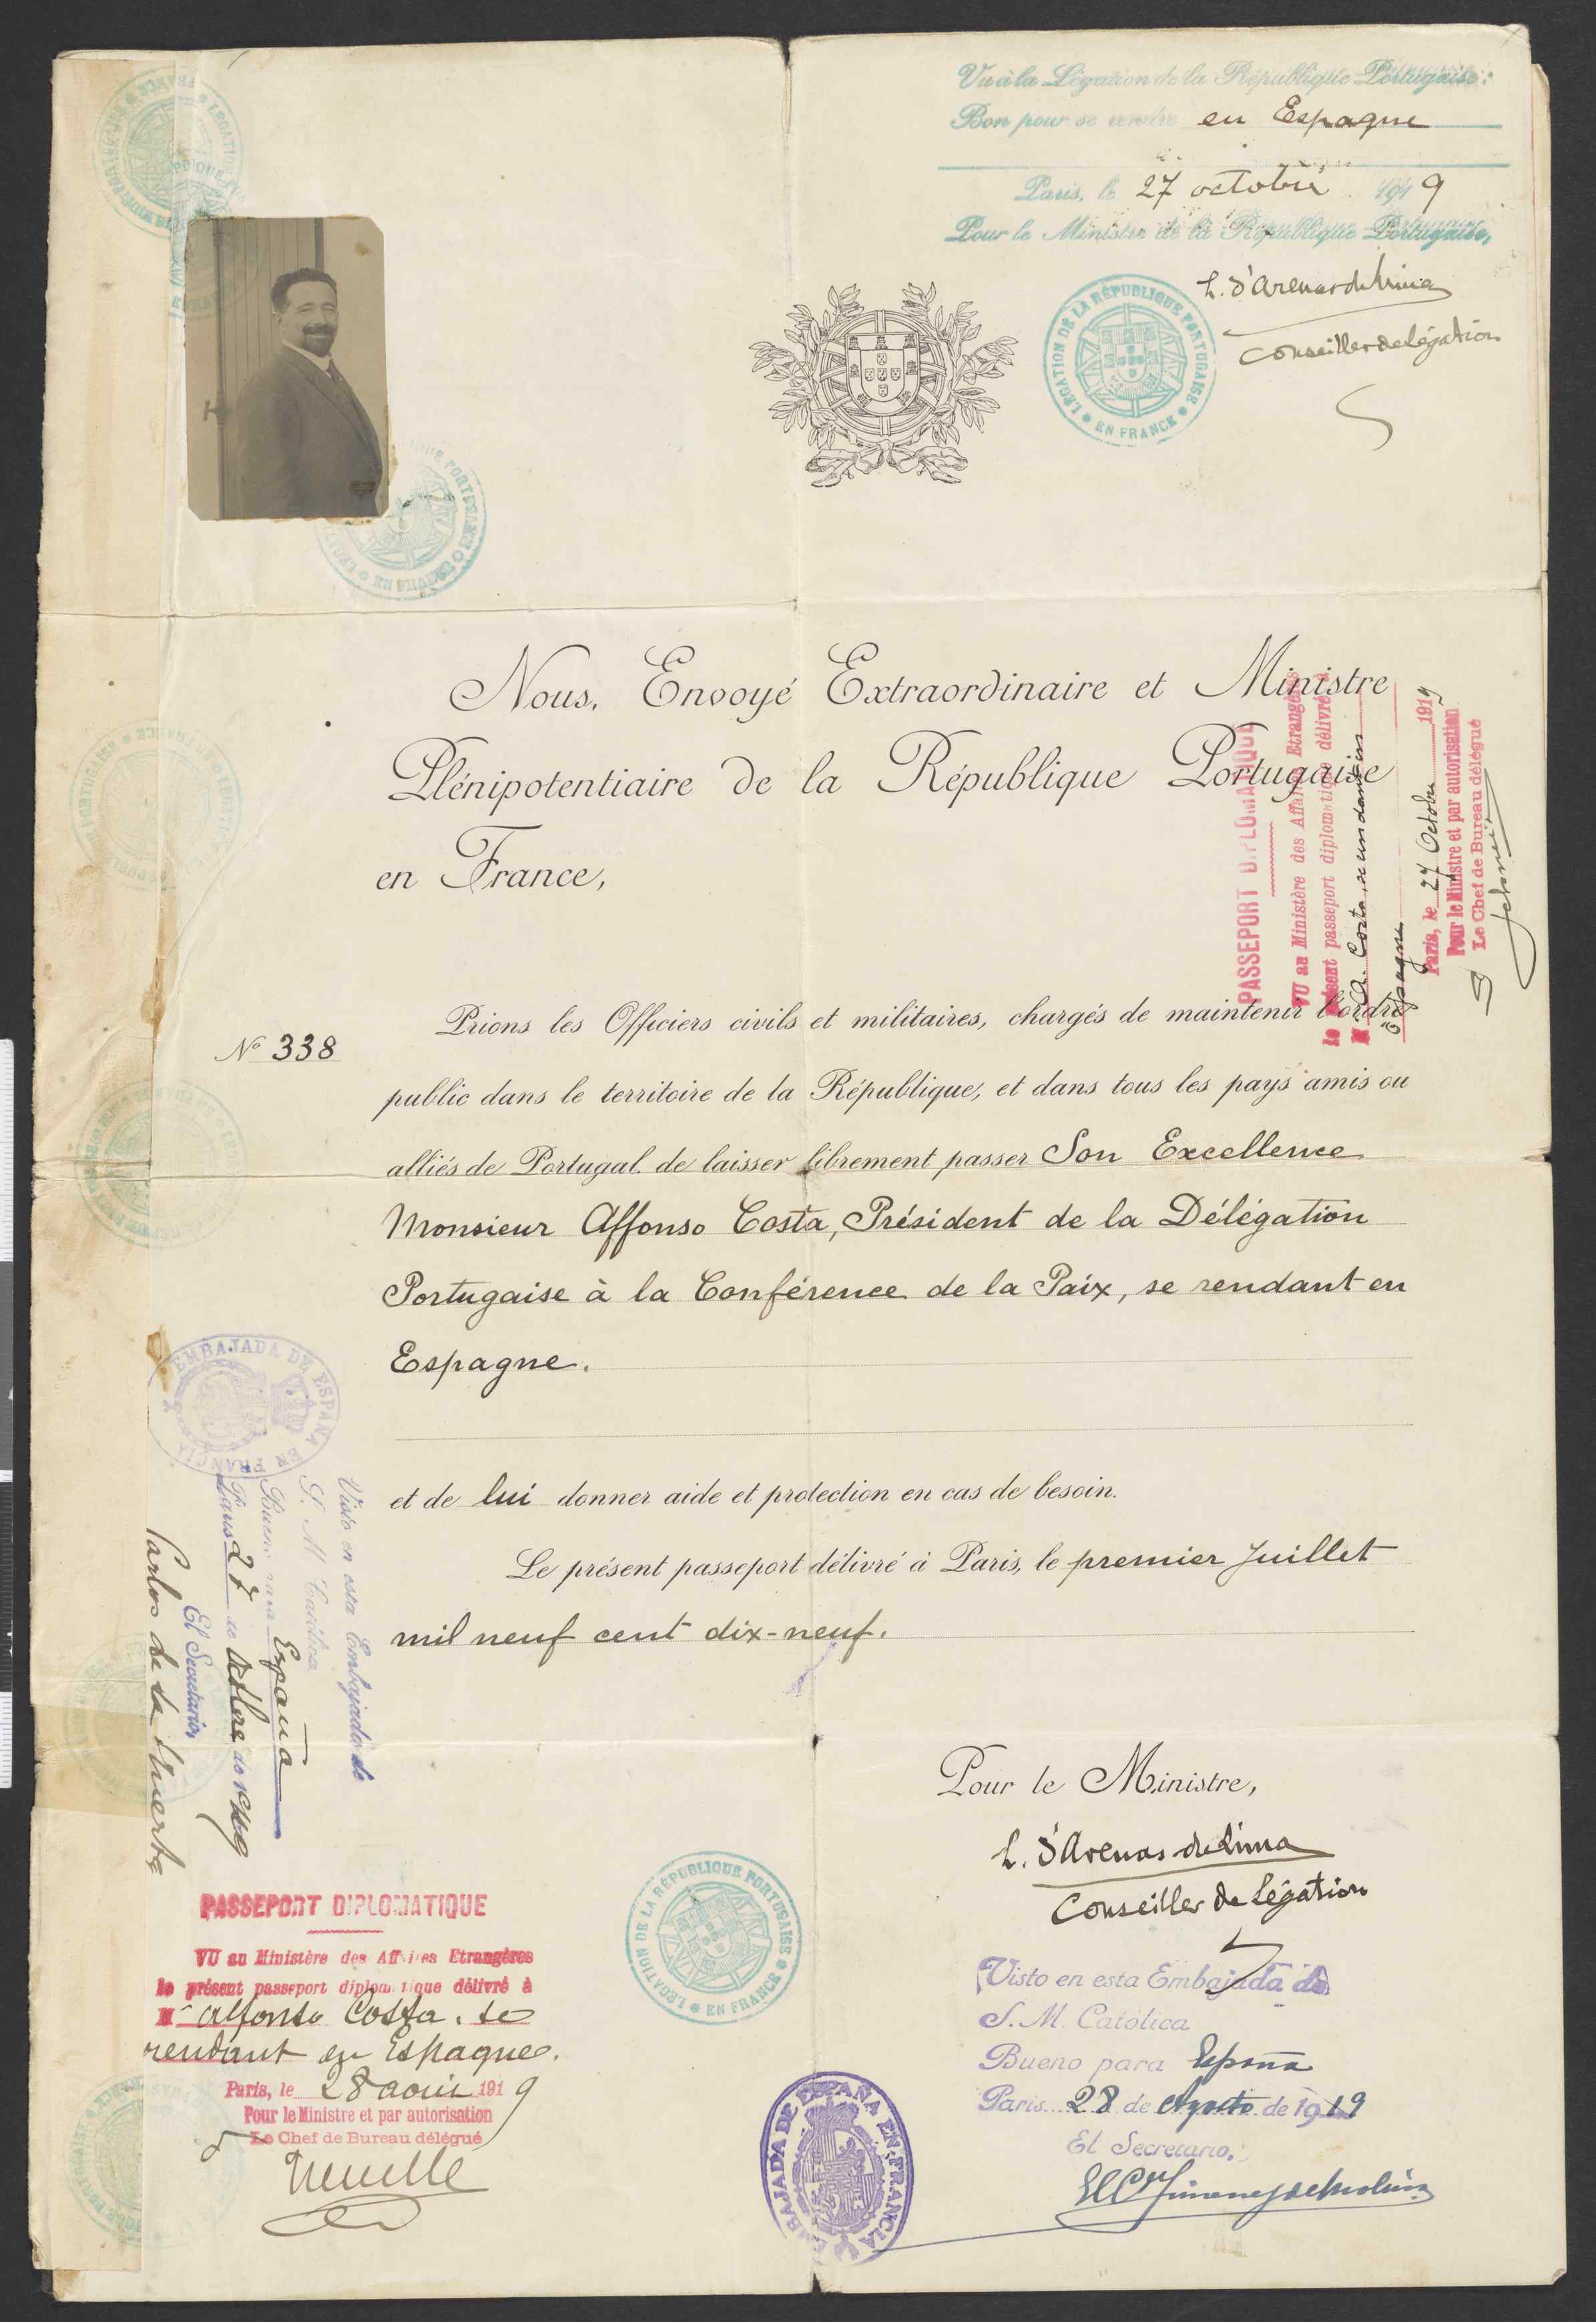 Vu à la Légation de la République Portugaise:
Bon pour se rendre en Espagne
Paris, le 27 octobre 1919
Pour le Ministre de la République Portugaise,
Conseiller de légation
LÉGATION DE LA RÉPUBLIQUE PORTUGAISE
EN FRANCE
Nous, Envoyé Extraordinaire et Ministre
Plénipotentiaire de la République Portugaise
en France,
PASSEPORT DIPLOMATIQUE
VU au Ministère des Affaires Etrangères
le présent passeport diplomatique délivré à
M. A. Costa, se rendant en
Espagne
Paris, le 27 Octobre 1919
Pour le Ministre et par autorisation
Le Chef de Bureau délégué
Nº 338
Prions les Officiers civils et militaires, chargés de maintenir l'ordre
public dans le territoire de la République, et dans tous les pays amis ou
alliés de Portugal de laisser librement passer Son Excellence
Monsieur Affonso Costa, Président de la Délégation
Portugaise à la Conférence de la Paix, se rendant en
Espagne.
et de lui donner aide et protection en cas de besoin.
Le présent passeport délivré à Paris, le premier Juillet
mil neuf cent dix-neuf.
EMBAJADA DE ESPAÑA EN FRANCIA
Visto en esta Embajada de
S. M. Católica
Bueno para España
Paris 27 de Octbre de 1919
El Secretario,
Carlos de la Huerta
Pour le Ministre,
L. d'Arenas de Lima
Conseiller de Légation
LÉGATION DE LA RÉPUBLIQUE PORTUGAISE
EN FRANCE
PASSEPORT DIPLOMATIQUE
VU au Ministère des Affaires Etrangères
le présent passeport diplomatique délivré à
M. Alfonso Costa. se
rendant en Espagne.
Paris, le 28 aout 1919
Pour le Ministre et par autorisation
Le Chef de Bureau délégué
Visto en esta Embajada de
S. M. Católica
Bueno para España
Paris 28 de Agosto de 1919
El Secretario.
EMBAJADA DE ESPAÑA EN FRANCIA